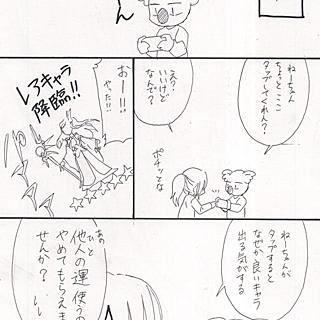 ん
ねーちゃん
ちょっとここ
タップしてくれん?
え?
いいけど
なんで?
ポチッとな
おー!!
やった!!
レアキャラ
降臨!!
ねーちゃんが
タップすると
なぜか良いキャラ
出る気がする
あの
ひと
他人の運使うの
やめてもらえま
せんか?